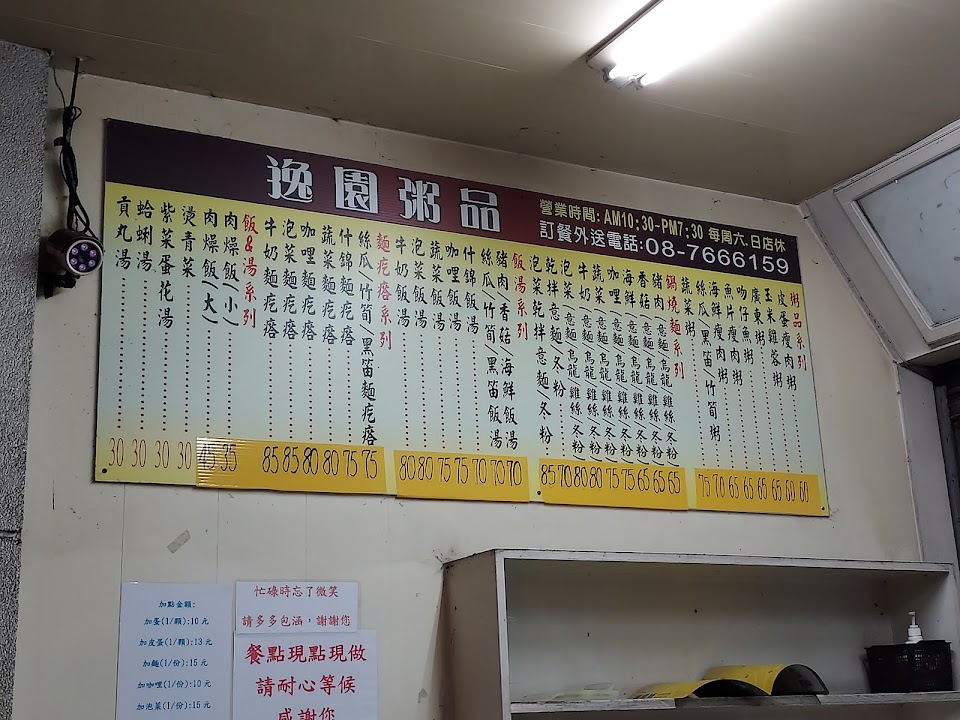 逸園粥品
營業時間:AM10:30-PM7:30 每周六.日店休
訂餐外送電話:08-7666159
粥品系列
皮蛋瘦肉粥 60
玉米雞蓉粥 60
廣東粥 65
吻仔魚粥 65
魚片瘦肉粥 65
海鮮瘦肉粥 65
絲瓜黑笛/竹筍粥 70
蔬菜粥 75
鍋燒麵系列
豬肉(意麵/烏龍/雞絲/冬粉) 65
香菇(意麵/烏龍/雞絲/冬粉) 65
海鮮(意麵/烏龍/雞絲/冬粉) 65
咖哩(意麵/烏龍/雞絲/冬粉) 75
蔬菜(意麵/烏龍/雞絲/冬粉) 75
牛奶(意麵/烏龍/雞絲/冬粉) 80
泡菜(意麵/烏龍/雞絲/冬粉) 80
乾拌意麵/冬粉 70
泡菜乾拌意麵/冬粉 85
飯湯系列
豬肉/香菇/海鮮飯湯 70
絲瓜/竹筍/黑笛飯湯 70
什錦飯湯 70
咖哩飯湯 75
蔬菜飯湯 75
泡菜飯湯 80
牛奶飯湯 80
麵疙瘩系列
絲瓜/竹筍/黑笛麵疙瘩 75
什錦麵疙瘩 75
蔬菜麵疙瘩 80
咖哩麵疙瘩 80
泡菜麵疙瘩 85
牛奶麵疙瘩 85
飯&湯系列
肉燥飯(小) 35
肉燥飯(大) 45
燙青菜 30
紫菜蛋花湯 30
蛤蜊湯 30
貢丸湯 30
加點金額:
加蛋(1/顆):10元
加皮蛋(1/顆):13元
加麵(1/份):15元
加咖哩(1/份):10元
加泡菜(1/份):15元
忙碌時忘了微笑
請多多包涵，謝謝您
餐點現點現做
請耐心等候
感謝您